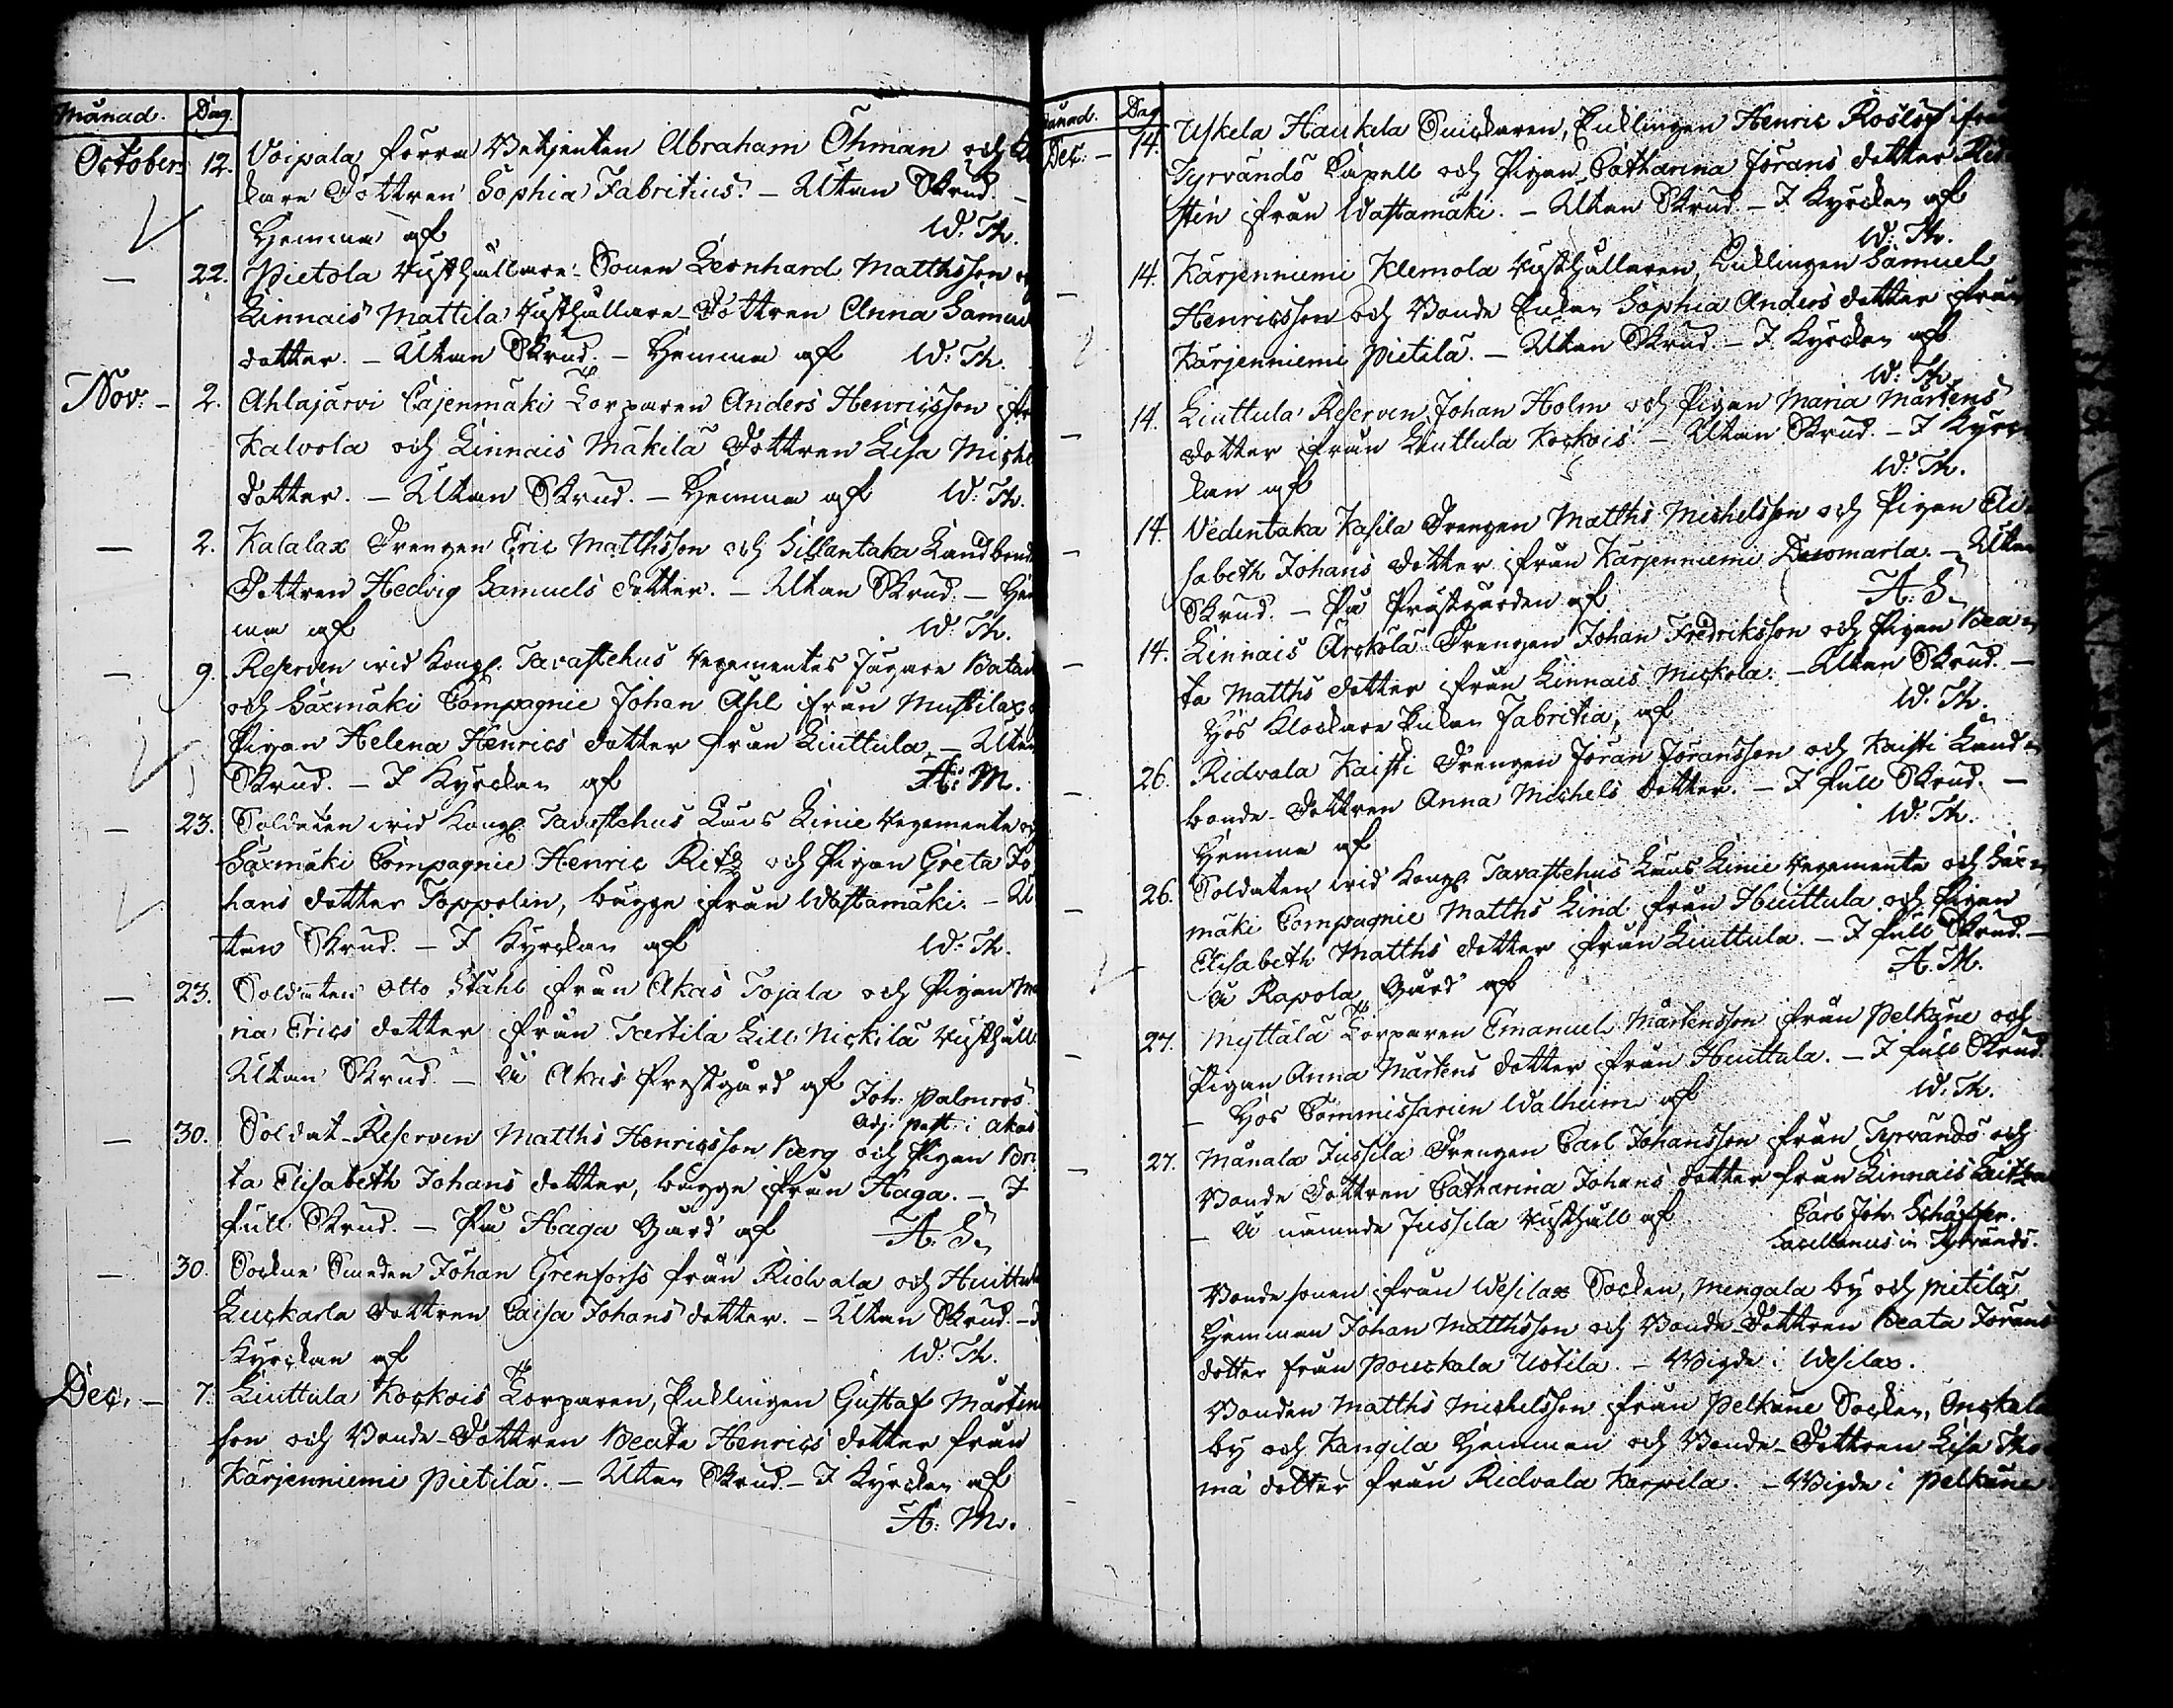 Månad. Dag.
October 12. Voipala förra Betjenten Abraham Öhman och
kare Dottren Sophia Fabritius. – Utan Skrud. –
Hemma af W: Th.
— 22. Pietola Rusthållare-Sonen Leonhard Matthsson
Linnais Mattila Rusthållare-Dottren Anna Samu
dotter. – Utan Skrud. – Hemma af W: Th.
Nov: – 2. Ahlajärvi Cajenmäki Torparen Anders Henricsson
Kalvola och Linnais Mäkilä Dottren Lisa Miche
dotter. – Utan Skrud. – Hemma af W: Th.
— 2. Kalalax Drengen Eric Matthsson och Sillantaka Landbonde
Dottren Hedvig Samuels dotter. – Utan Skrud. – Hem
ma af W: Th.
— 9. Reserven wid Kongl. Tavastehus Regementes Jägare Batail
och Säxmäki Compagnie Johan Ahl ifrån Mustilax
Pigan Helena Henrics dotter från Liuttula. – Utan
Skrud. – I Kyrckan af A: M.
— 23. Soldaten wid Kongl. Tavastehus Läns Linie Regemente och
Säxmäki Compagnie Henric Ritz och Pigan Greta Jo
hans dotter Toppolin, bägge ifrån Wastamäki. – U
tan Skrud. – I Kyrckan af W: Th.
— 23. Soldaten Otto Ståhl ifrån Akas Tojala och Pigan Ma
ria Erics dotter ifrån Tarttila Lill Nickilä Rusthåll.
Utan Skrud. – å Akas Prestgård af Joh. Palmros
Adj. past. i Akas
— 30. Soldat-Reserven Matths Henricsson Berg och Pigan Bri
ta Elisabeth Johans dotter, bägge ifrån Haga. – I
full Skrud. – På Haga Gård af A: S.
— 30. Sockne Smeden Johan Grenforss från Ridvala och Huittula
Luckarla dottren Caisa Johans dotter. – Utan Skrud. – I
Kyrckan af W: Th.
Dec. – 7. Liuttula Kockois Torparen, Enklingen Gustaf Mårtens
son och Bonde-Dottren Beata Henrics dotter från
Kärjenniemi Pietilä. – Utan Skrud. – I Kyrckan af
A: M.
Månad. Dag
Dec. – 14. Uskela Haukila Snickaren, Enklingen Henric Roslöf ifrån
Tyrvändö Capell och Pigan Catharina Jörans dotter
sten ifrån Wastamäki. – Utan Skrud. – I Kyrckan af
W: Th.
— 14. Kärjenniemi Klemola Rusthållaren, Enklingen Samuel
Henricsson och Bonde Enkan Sophia Anders dotter ifrån
Kärjenniemi Pietilä. – Utan Skrud. – I Kyrckan af
W: Th.
— 14. Liuttula Reserven Johan Holm och Pigan Maria Mårtens
dotter ifrån Liuttula Kockois. – Utan Skrud. – I Kyrc
kan af W: Th.
— 14. Vedentaka Kasila Drengen Matths Michelsson och Pigan Eli
sabeth Johans dotter ifrån Kärjenniemi Duomarla. – Utan
Skrud. – På Prästgården af A: S.
— 14. Linnais Arckola Drengen Johan Fredriksson och Pigan Bea
ta Matths dotter ifrån Linnais Mickola. – Utan Skrud. –
Hos Klockare Enkan Fabritia, af W: Th.
— 26. Ridvala Kaisti Drengen Jöran Jöransson och Kaisti Land
bonde-Dottren Anna Michels dotter. – I full Skrud. –
Hemma af W: Th.
— 26. Soldaten wid Kongl. Tavastehus Läns Linie Regemente och Säx
mäki Compagnie Matths Lind från Huittula och Pigan
Elisabeth Matths dotter ifrån Liuttula. – I full Skrud. –
å Rapola Gård af A. M.
— 27. Myttälä Torparen Emanuel Mårtensson ifrån Pelkäne och
Pigan Anna Mårtens dotter ifrån Huittula. – I full Skrud.
– Hos Commissarien Walheim af W: Th.
— 27. Mänälä Jussila Drengen Carl Johansson ifrån Tyrvändö och
Bonde Dottren Catharina Johans dotter från Linnais
– å nämnde Jussila Rusthåll af Carl Joh. Schäffer.
Sacellanus in Tyrvändö.
Bondesonen ifrån Wesilax Socken, Mengala by och Pietilä
Hemman Johan Matthsson och Bonde-Dottren Beata Jörans
dotter från Pouckala Uotila. – Wigde i Wesilax.
Bonden Matths Michelsson ifrån Pelkäne Socken, Onckala
by och Kangila Hemman och Bonde-Dottren Lisa Tho
mä dotter från Ridvala Karpila. – Wigde i Pelkäne.